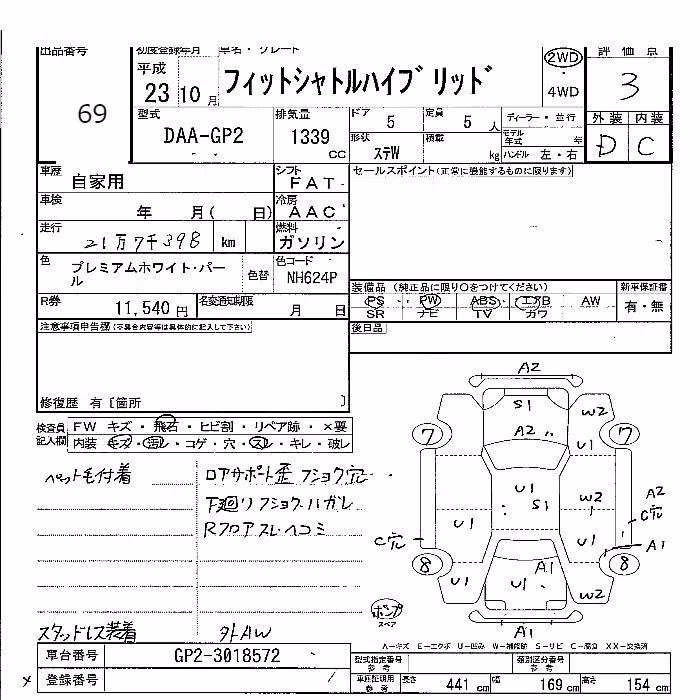 出品番号 初度登録年月 車名・グレード 評価点
平成 フィットシャトルハイブリッド 2WD
23 10月 4WD 3
69
型式 排気量 ドア 5 定員 5人 ディーラー・並行 外装 内装
DAA-GP2 1339 CC 形状 ステW 積載 kg モデル年式 年 D C
ハンドル 左・右
車歴 自家用 シフト FAT セールスポイント(正常に機能するものに限ります)
車検 年 月( 日) 冷房 AAC
走行 21万7千398 km 燃料 ガソリン
色 プレミアムホワイト・パール 色替 色コード NH624P
装備品 (純正品に限り○をつけてください) 新車保証書
R券 11,540円 名変通知期限 月 日 PS PW ABS エアB AW 有・無
SR ナビ TV カワ
注意事項申告欄(不具合内容等は具体的に記入して下さい) 後日品
修復歴 有〔箇所 〕
検査員記入欄 FW キズ・飛石・ヒビ割・リペア跡・×要
内装 キズ・汚レ・コゲ・穴・スレ・キレ・破レ
ペット毛付着 ロアサポート歪 フショク穴
下廻リフショク・ハガレ
Rフロアスレ・ヘコミ
スタッドレス装着 外AW
A2
S1 W2
7 A2 7
U1 W2 A2
S1 C穴
U1 U1 A1
C穴
8 A1 8
U1 U1 W2
ポンプ
スペア A1
A−キズ E−エクボ U−凹み W−補修跡 S−サビ C−腐食 XX−交換済
車台番号 GP2-3018572 型式指定番号 参考 類別区分番号 参考
登録番号 車証証明用 参考 長さ 441 cm 幅 169 cm 高さ 154 cm